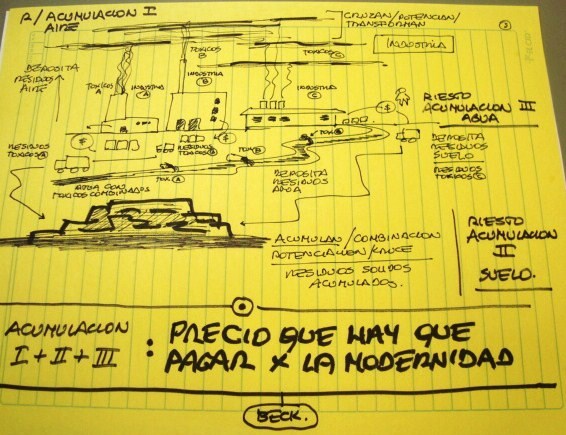 R/ ACUMULACION I
AIRE
CRUZAN/POTENCIAN/
TRANSFORMAN
INDUSTRIA
DEPOSITA
RESIDUOS
AIRE
TOXICOS
A
INDUSTRIA
A
TOXICOS
B
INDUSTRIA
B
TOXICOS
C
INDUSTRIA
C
RIESTO
ACUMULACION III
AGUA
RESIDUOS
TOXICOS A
$
RESIDUOS
TOXICOS B
$
DEPOSITA
RESIDUOS
SUELO
RESIDUOS
TOXICOS C
AGUA CON
TOXICOS COMBINADOS
TOX. A
TOX B
DEPOSITA
RESIDUOS
AGUA
ACUMULAN/COMBINACION
POTENCIACION/CRUCE
RESIDUOS SOLIDOS
ACUMULADOS.
RIESTO
ACUMULACION
II
SUELO.
ACUMULACION
I + II + III : PRECIO QUE HAY QUE
PAGAR X LA MODERNIDAD
BECK.